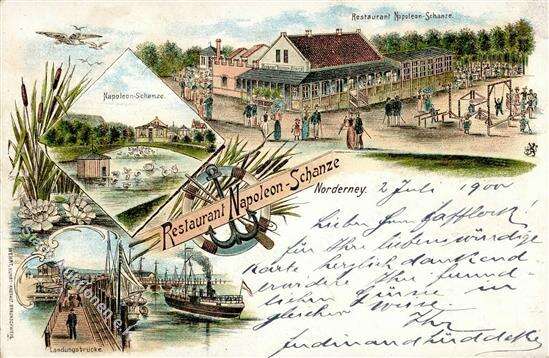 Restaurant Napoleon-Schanze.
Napoleon-Schanze.
Restaurant Napoleon-Schanze
Norderney. 2 Juli 1900
Lieber Herr
für Ihre liebenswürdige
Karte herzlich dankend
erwidere Ihre freund-
lichen Grüße in
gleicher Weise.
Ihr
Landungsbrücke.